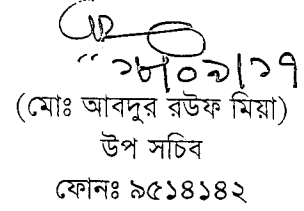 ১৮/০৯/১৭
(মোঃ আবদুর রউফ মিয়া)
উপ সচিব
ফোনঃ ৯৫১৪১৪২